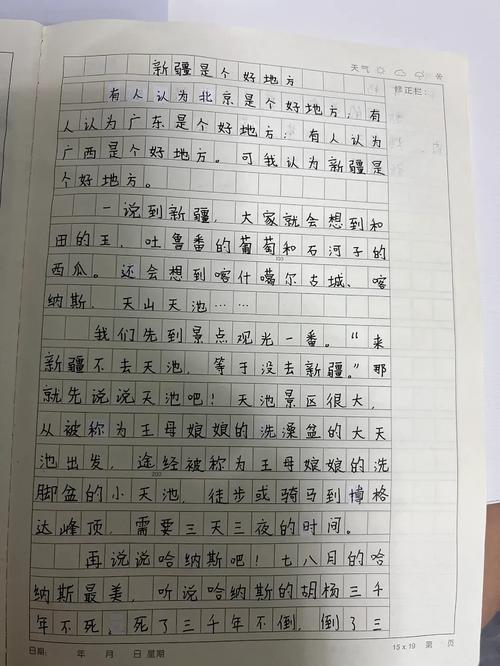 天气
修正栏:
新疆是个好地方
有人认为北京是个好地方;有
人认为广东是个好地方;有人认为
广西是个好地方。可我认为新疆是
个好地方。
一说到新疆,大家就会想到和
田的玉、吐鲁番的葡萄和石河子的
100
西瓜。还会想到喀什噶尔古城、喀
纳斯、天山天池……
我们先到景点观光一番。“来
新疆不去天池,等于没去新疆。”那
就先说说天池吧!天池景区很大,
从被称为王母娘娘的洗澡盆的大天
池出发,途经被称为王母娘娘的洗
200
脚盆的小天池,徒步或骑马到博格
达峰顶,需要三天三夜的时间。
再说说哈纳斯吧!七八月的哈
纳斯最美,听说哈纳斯的胡杨三千
年不死,死了三千年不倒,倒了三
日期: 年 月 日 星期 15×19 第 页